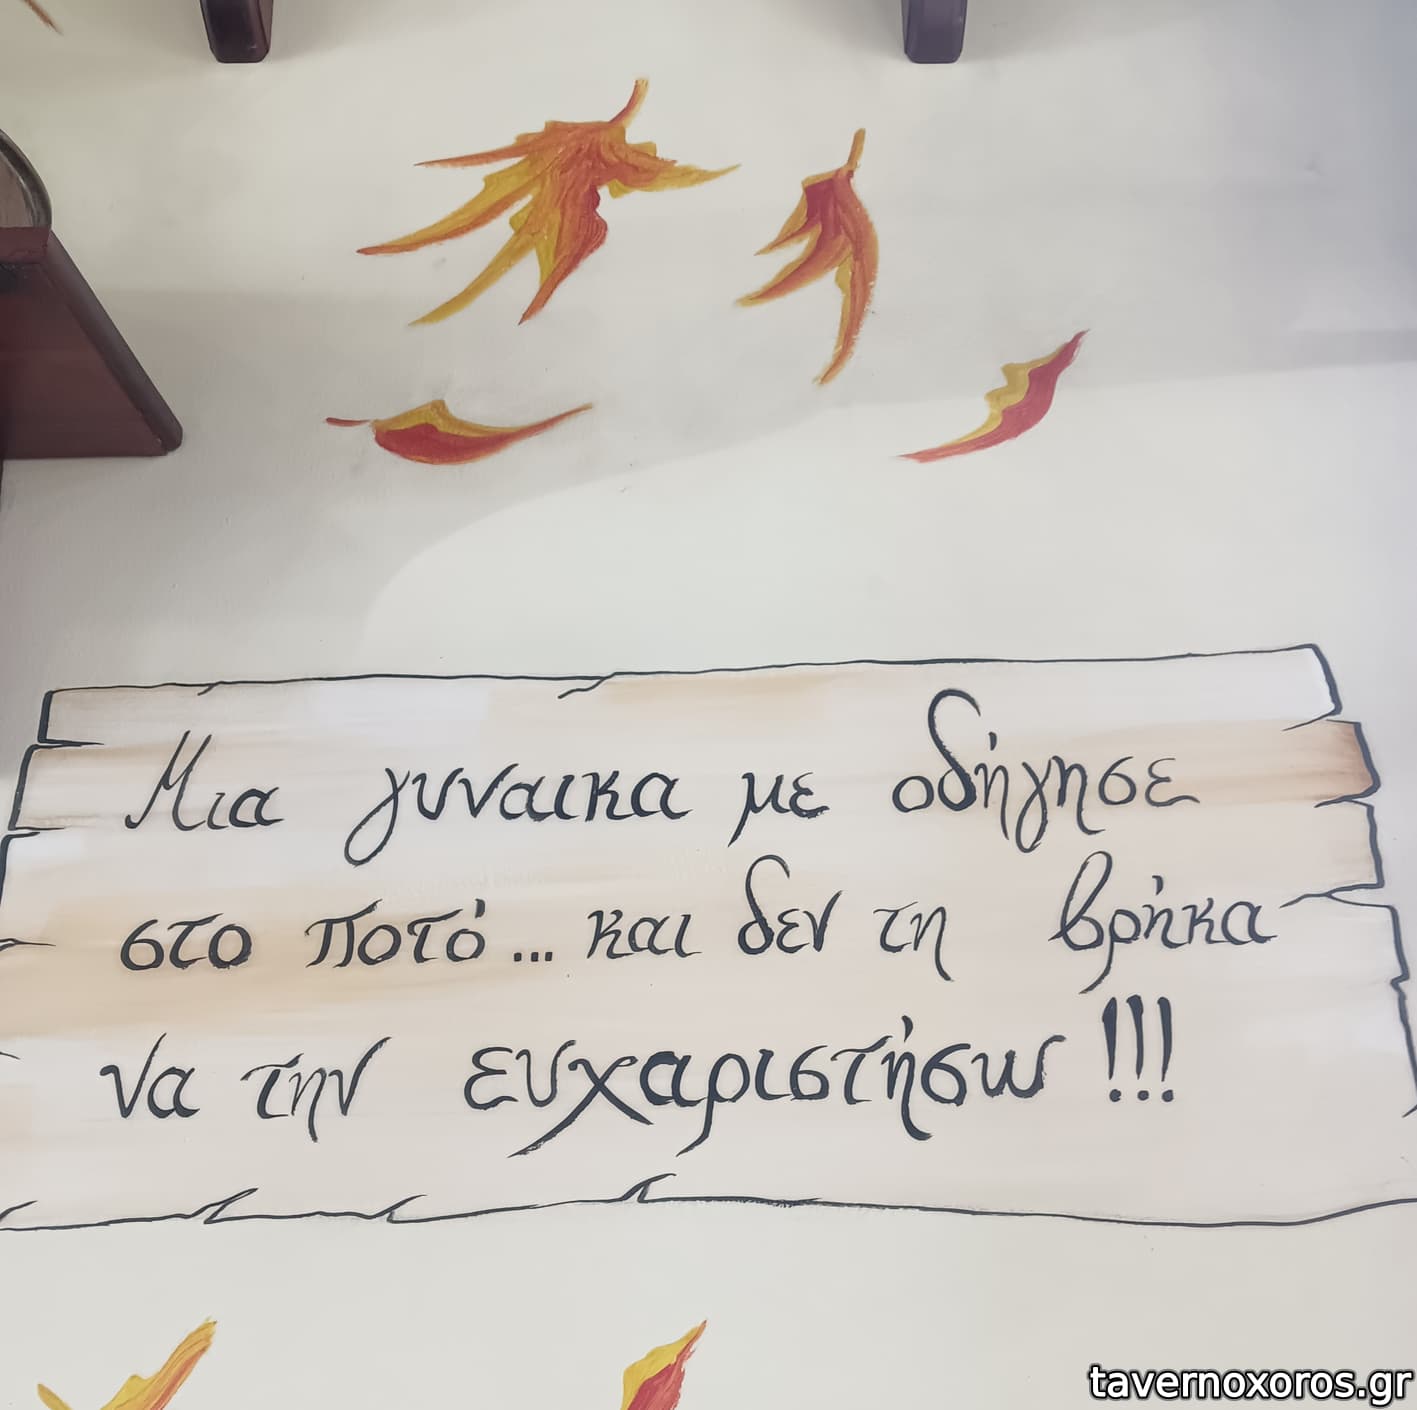 Μια γυναικα με οδήγησε
στο ποτό... και δεν τη βρήκα
να την ευχαριστήσω!!!
tavernoxoros.gr